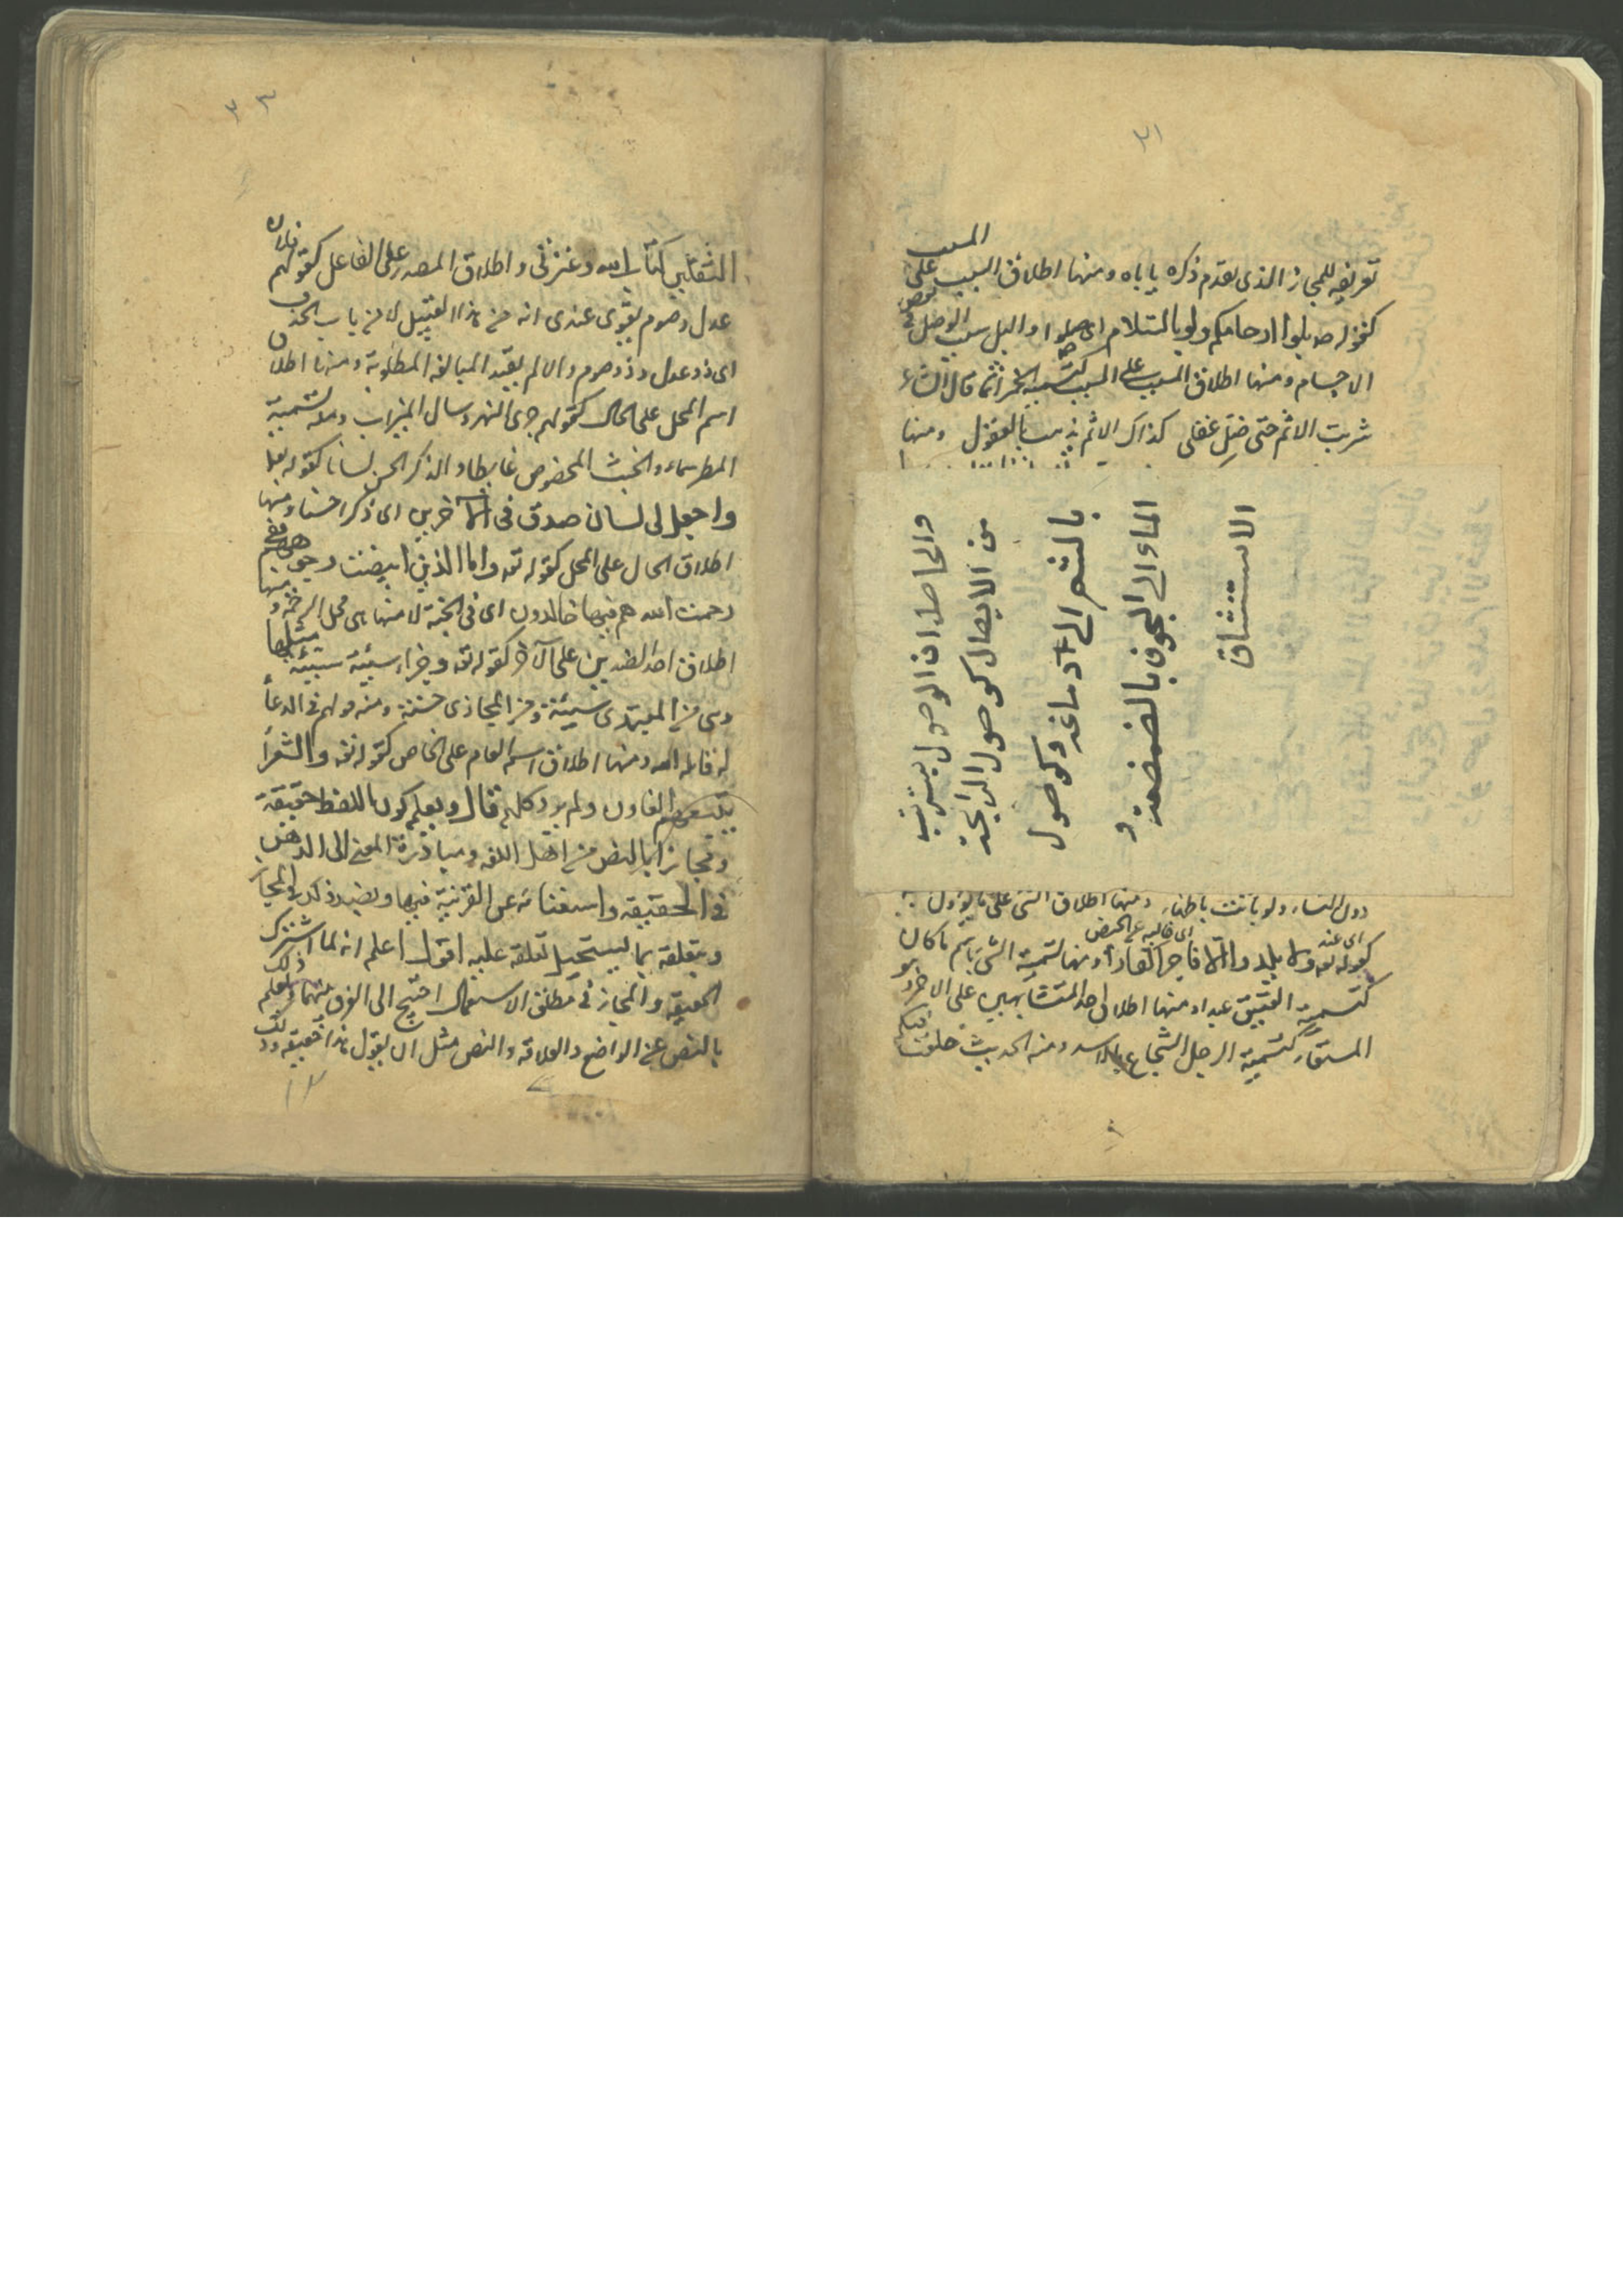 ٣١
المسبب
تعريفه للمجاز الذى تقدم ذكره ياباه ومنها اطلاق السبب على
كقوله صه بلوا ارحامكم ولو بالسلام اى صلوا والبل سبب الوصل بعض
الاجسام ومنها اطلاق المسبب على السبب كتسمية الخمر اثما قال الشاعر
شربت الاثم حتى ضل عقلى كذاك الاثم يذهب بالعقول ومنها
والحاصل ان الوصول يترتب
من الايصال كوصول الرائحة
بالشم الى دماغه وكوصول
الماء الى الجوف بالمضمضة و
الاستنشاق
دون النساء ولو بانت باطناء ومنها اطلاق الشى على ما يؤول
اى عند اى قالبه
كقوله تعه ولا يلدوا الا فاجرا كفارا ومنها تسمية الشى باسم ما كان
كتسمية العتيق عبدا ومنها اطلاق احد المتشابهين على الاخر وهو
المستعار كتسمية الرجل الشجاع بالاسد ومنه الحديث خلفت فيكم
٣٢
الثقلين كتاب الله وعترتى واطلاق المصدر على الفاعل كقولهم فلان
عدل وصوم يقوى عندى انه من هذا القبيل لا من باب الحذف
اى ذو عدل وذو صوم والا لم يفد المبالغة المطلوبة ومنها اطلاق
اسم المحل على الحال كقولهم جرى النهر وسال الميزاب ومنه تسمية
المطر سماء والخبث المخصوص غايطا والذكر الحسن لسانا كقوله تعه
واجعل لى لسان صدق فى الآخرين اى ذكرا حسنا ومنها
اطلاق الحال على المحل كقوله تعه واما الذين ابيضت وجوههم ففى
رحمت الله هم فيها خالدون اى فى الجنة لانها هى محل الرحمة ومنها
اطلاق احد الضدين على الآخر كقوله تعه وجزاء سيئة سيئة مثلها
وهى من المبتدى سيئة ومن المجازى حسنة ومنه قولهم فى الدعاء
له قاتله الله ومنها اطلاق اسم العام على الخاص كقوله تعه والشعراء
يتبعهم الغاون ولم يرد كلهم قال ويعلم كون اللفظ حقيقة
ومجازا بالنص من اهل اللغه ومبادرة المعنى الى الذهن
فى الحقيقه واستغنائه عن القرنية فيها وبضد ذلك فى المجاز
وبتعلقه بما يستحيل تعلقه عليه اقول اعلم انه لما اشترك
الحقيقه والمجاز فى مطلق الاستعمال احتيج الى الفرق بينهما ويعلم ذلك
بالنص من الواضع والعلاقه والنص مثل ان يقول هذا حقيقه وذلك